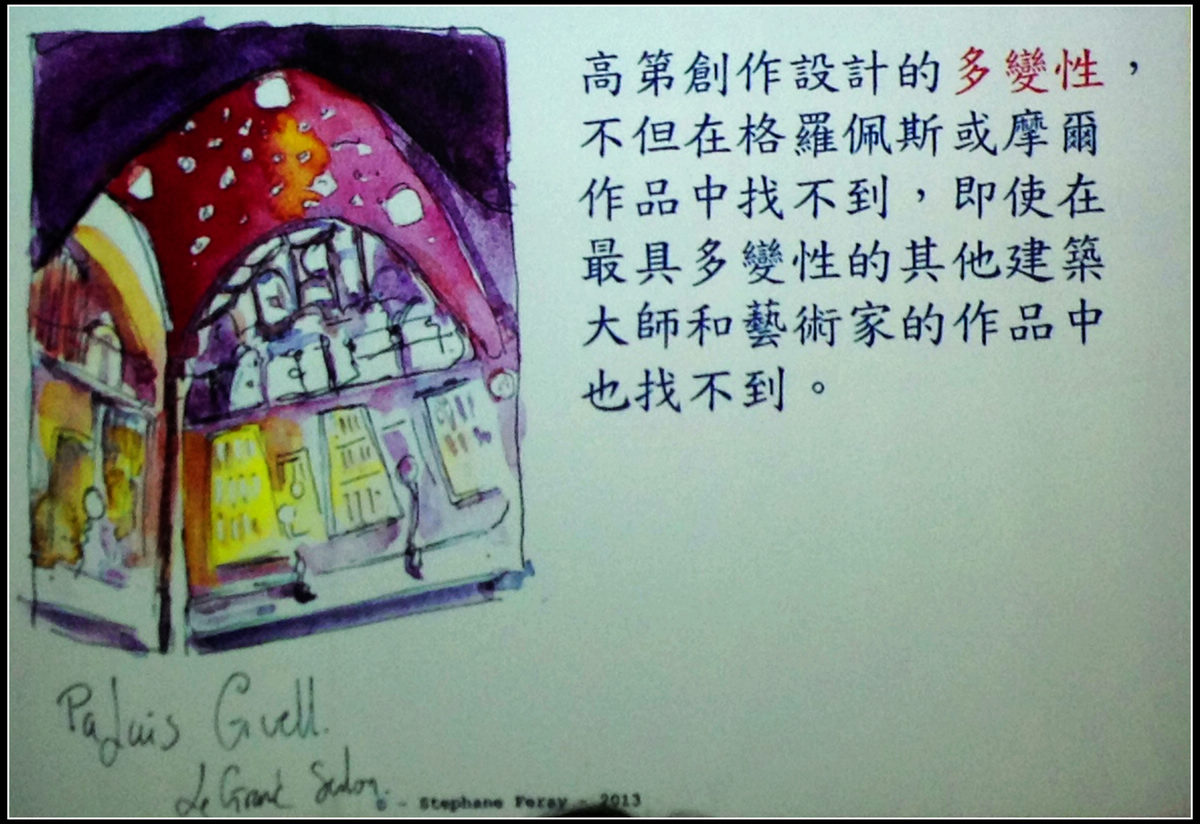 高第創作設計的多變性，
不但在格羅佩斯或摩爾
作品中找不到，即使在
最具多變性的其他建築
大師和藝術家的作品中
也找不到。
Palais Guell.
Le Grand Salon.
© - Stephane Feray - 2013